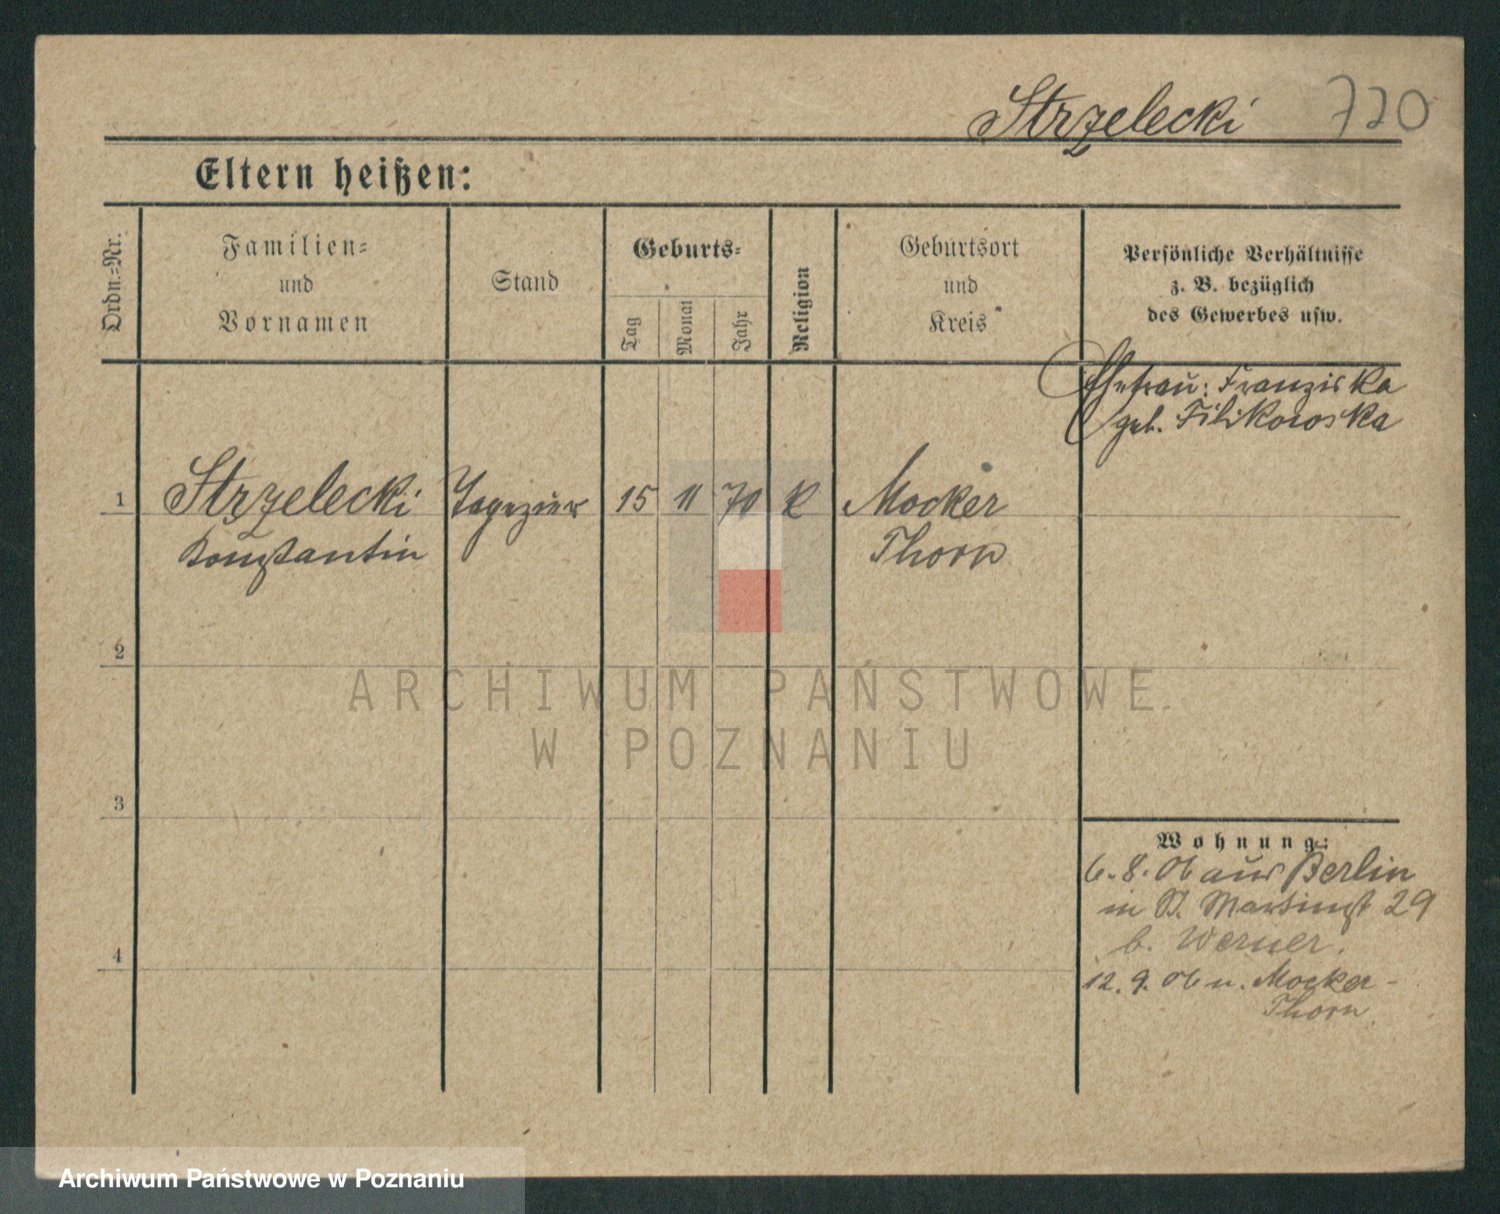 Strzelecki 720
Eltern heißen:
Ordn.=Nr.
Familien=
und
Vornamen
Stand
Geburts=
Tag
Monat
Jahr
Religion
Geburtsort
und
Kreis
Persönliche Verhältnisse
z. B. bezüglich
des Gewerbes usw.
Ehefrau: Franziska
geb. Filikowska
1 Strzelecki Tapezier 15 11 70 K Mocker
Konstantin Thorn
2
ARCHIWUM PAŃSTWOWE
W POZNANIU
3
Wohnung:
6.8.06 aus Berlin
in St. Martinst 29
b. Werner.
4
12.9.06 n. Mocker-
Thorn
Archiwum Państwowe w Poznaniu